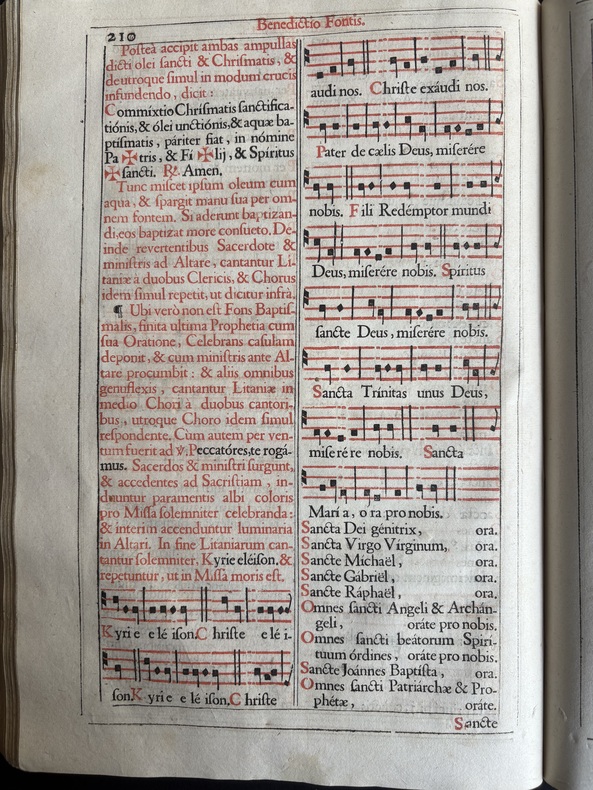 Benedictio Fontis.
210
Postea accipit ambas ampullas
dicti olei sancti & Chrismatis, &
de utroque simul in modum crucis
infundendo, dicit:
Commixtio Chrismatis sanctifica-
tiónis, & ólei unctiónis, & aquæ ba-
ptismatis, páriter fiat, in nómine
Pa ✠ tris, & Fí ✠ lij, & Spíritus
✠ sancti. ℟. Amen.
Tunc miscet ipsum oleum cum
aqua, & spargit manu sua per om-
nem fontem. Si aderunt baptizan-
di, eos baptizat more consueto. De-
inde revertentibus Sacerdote &
ministris ad Altare, cantantur Li-
taniæ à duobus Clericis, & Chorus
idem simul repetit, ut dicitur infrà.
¶ Ubi verò non est Fons Baptis-
malis, finita ultima Prophetia cum
sua Oratione, Celebrans casulam
deponit, & cum ministris ante Al-
tare procumbit: & aliis omnibus
genuflexis, cantantur Litaniæ in
medio Chori à duobus cantori-
bus, utroque Choro idem simul
respondente. Cum autem per ven-
tum fuerit ad ℣. Peccatóres, te rogá-
mus. Sacerdos & ministri surgunt,
& accedentes ad Sacristiam, in-
duuntur paramentis albi coloris
pro Missa solemniter celebranda:
& interim accenduntur luminaria
in Altari. In fine Litaniarum can-
tantur solemniter. Kyrie eléison. &
repetuntur, ut in Missâ moris est.
Kyri e e lé ison. C hriste e lé i-
son. K yri e e lé ison. C hriste
audi nos. Christe exáudi nos.
Pater de cælis Deus, miserére
nobis. Fili Redémptor mundi
Deus, miserére nobis. Spíritus
sancte Deus, miserére nobis.
Sancta Trínitas unus Deus,
mise ré re nobis. Sancta
Marí a, o ra pro nobis.
Sancta Dei génitrix, ora.
Sancta Virgo Vírginum, ora.
Sancte Míchaël, ora.
Sancte Gábriel, ora.
Sancte Ráphaël, ora.
Omnes sancti Angeli & Archán-
geli, oráte pro nobis.
Omnes sancti beátorum Spirí-
tuum órdines, oráte pro nobis.
Sancte Joánnes Baptísta, ora.
Omnes sancti Patriárchæ & Pro-
phétæ, oráte.
Sancte